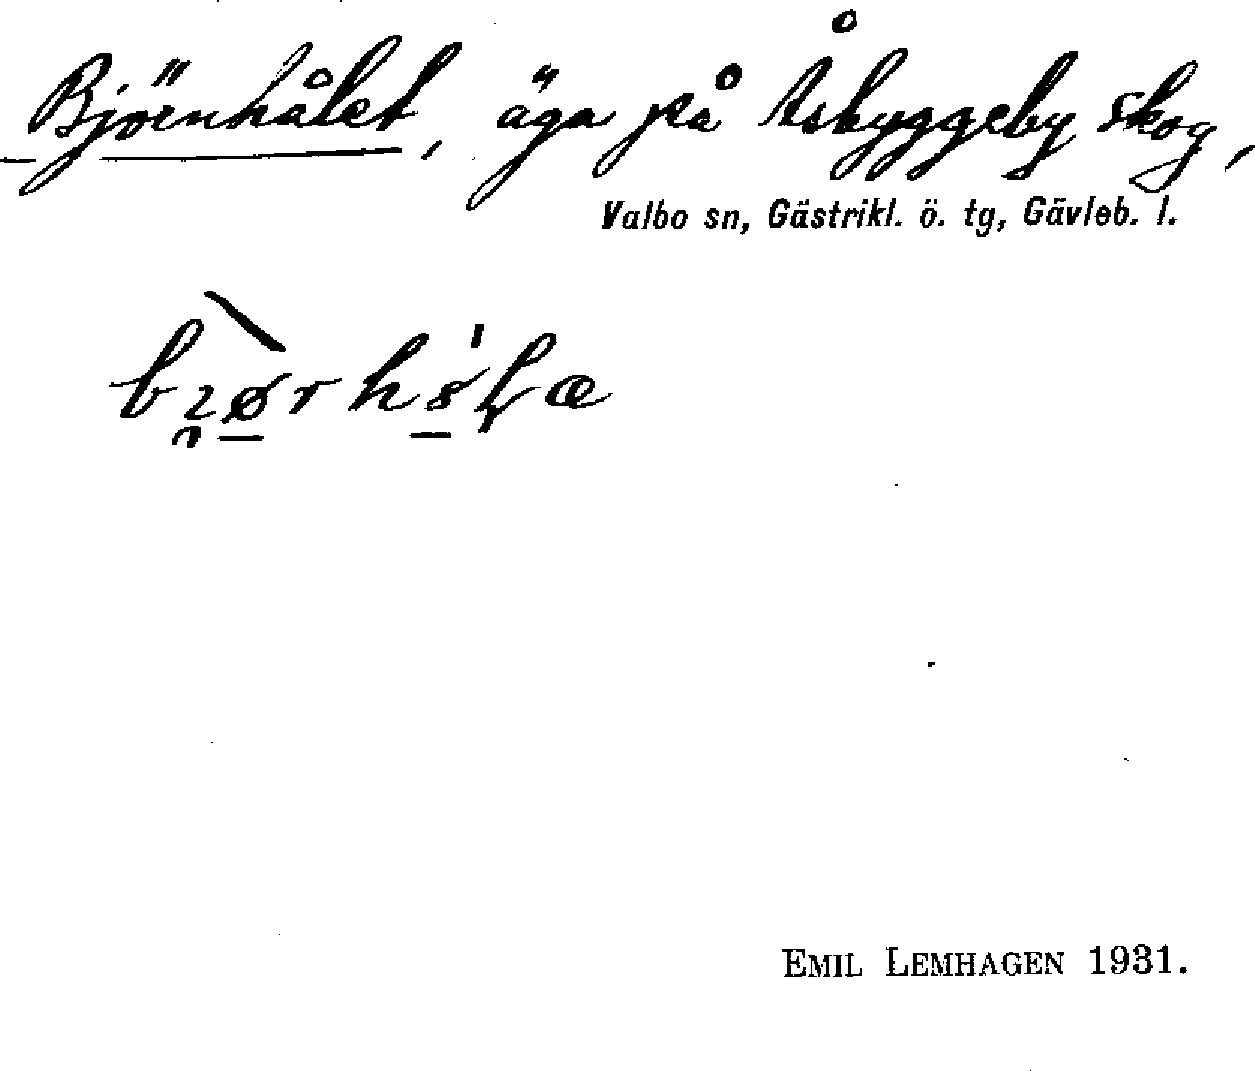 Björnhålet, äga på Åsbyggeby skog,
Valbo sn, Gästrikl. ö. tg, Gävleb. l.
EMIL LEMHAGEN 1931.